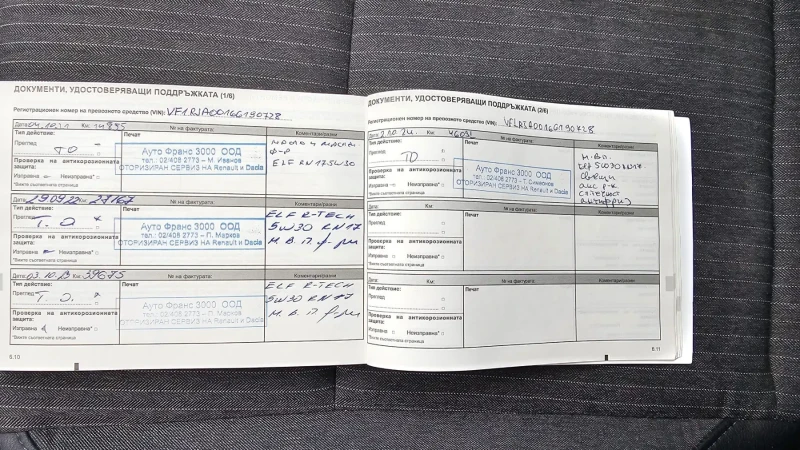 ДОКУМЕНТИ, УДОСТОВЕРЯВАЩИ ПОДДРЪЖКАТА (1/6)
Регистрационен номер на превозното средство (VIN): VF1RJA00166190728
Дата: 04.10.21 Км: 14895 № на фактурата:
Тип действие: Печат Коментари/разни
Преглед
ТО
Ауто Франс 3000 ООД
тел.: 02/408 2773 – М. Иванов
ОТОРИЗИРАН СЕРВИЗ НА Renault и Dacia
масло и маслен
ф-р
ELF RN17 5W30
Проверка на антикорозионната защита:
Изправна Неизправна*
*Вижте съответната страница
Дата: 29.09.22 Км: 27167 № на фактурата:
Тип действие: Печат Коментари/разни
Преглед
Т.О.
Ауто Франс 3000 ООД
тел.: 02/408 2773 – П. Марков
ОТОРИЗИРАН СЕРВИЗ НА Renault и Dacia
ELF R-TECH
5W30 RN17
М. В. П. ф-ри
Проверка на антикорозионната защита:
Изправна Неизправна*
*Вижте съответната страница
Дата: 03.10.23 Км: 39675 № на фактурата:
Тип действие: Печат Коментари/разни
Преглед
Т.О.
Ауто Франс 3000 ООД
тел.: 02/408 2773 – П. Марков
ОТОРИЗИРАН СЕРВИЗ НА Renault и Dacia
ELF R-TECH
5W30 RN17
М. В. П. ф-ри
Проверка на антикорозионната защита:
Изправна Неизправна*
*Вижте съответната страница
6.10
ДОКУМЕНТИ, УДОСТОВЕРЯВАЩИ ПОДДРЪЖКАТА (2/6)
Регистрационен номер на превозното средство (VIN):
Дата: 2.10.24 Км: № на фактурата:
Тип действие: Печат Коментари/разни
Преглед
ТО
Ауто Франс 3000 ООД
тел.: 02/408 2773 – Т. Симеонов
ОТОРИЗИРАН СЕРВИЗ НА Renault и Dacia
5W30 RN17
свещи
антифриз
Проверка на антикорозионната защита:
Изправна Неизправна*
*Вижте съответната страница
Дата: Км: № на фактурата:
Тип действие: Печат Коментари/разни
Преглед
Проверка на антикорозионната защита:
Изправна Неизправна*
*Вижте съответната страница
Дата: Км: № на фактурата:
Тип действие: Печат Коментари/разни
Преглед
Проверка на антикорозионната защита:
Изправна Неизправна*
*Вижте съответната страница
6.11